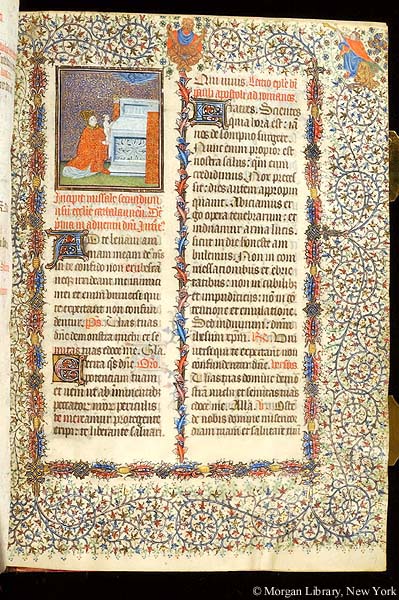 Incipit missale secundum
usum eccłie cathalaunen. Do
prima in adventu dni.
Ad te levavi ani
mam meam deus me
us in te confido non erubesca
neqz irrideant me inimici
mei etenim universi qui
te expectant non confun
dentur. Ps. Vias tuas
dne demonstra michi et se
mitas tuas edoce me. Gla
Excita qs dne Oro
potentiam tuam
et veni ut ab iminentibz
peccator nror periculis
te mereamur protegente
eripi te liberante salvari
Qui vivis. Lectio eple bti
pauli apostoli ad romanos.
Fratres. Scientes
quia hora est ia
nos de sompno surgere.
Nunc enim propior est
nostra salus qm cum
credidimus. Nox preces
sit dies autem appropin
quavit. Abiciamus er
go opera tenebrarum et
induamur arma lucis.
sicut in die honeste am
bulemus. Non in com
messationibus et ebrie
tatibus non in cubilib
et impudiciciis non in co
tentione et emulatione.
Sed induimini dnm
ihesum xpm. Uni
versi qui te expectant non
confundentur dne. Versus
Vias tuas domine demon
stra michi et semitas tuas
edoce me. Alla. Oste
de nobis domine misericor
diam tuam et salutare tuu
© Morgan Library, New York